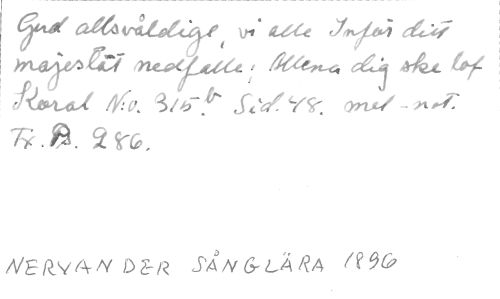 Gud allsvåldige, vi alle Inför ditt
majestät nedfalle; Allena dig ske lof
Koral N:o. 315.b Sid. 48. mel-not.
Tx. Ps. 286.
NERVANDER SÅNGLÄRA 1896